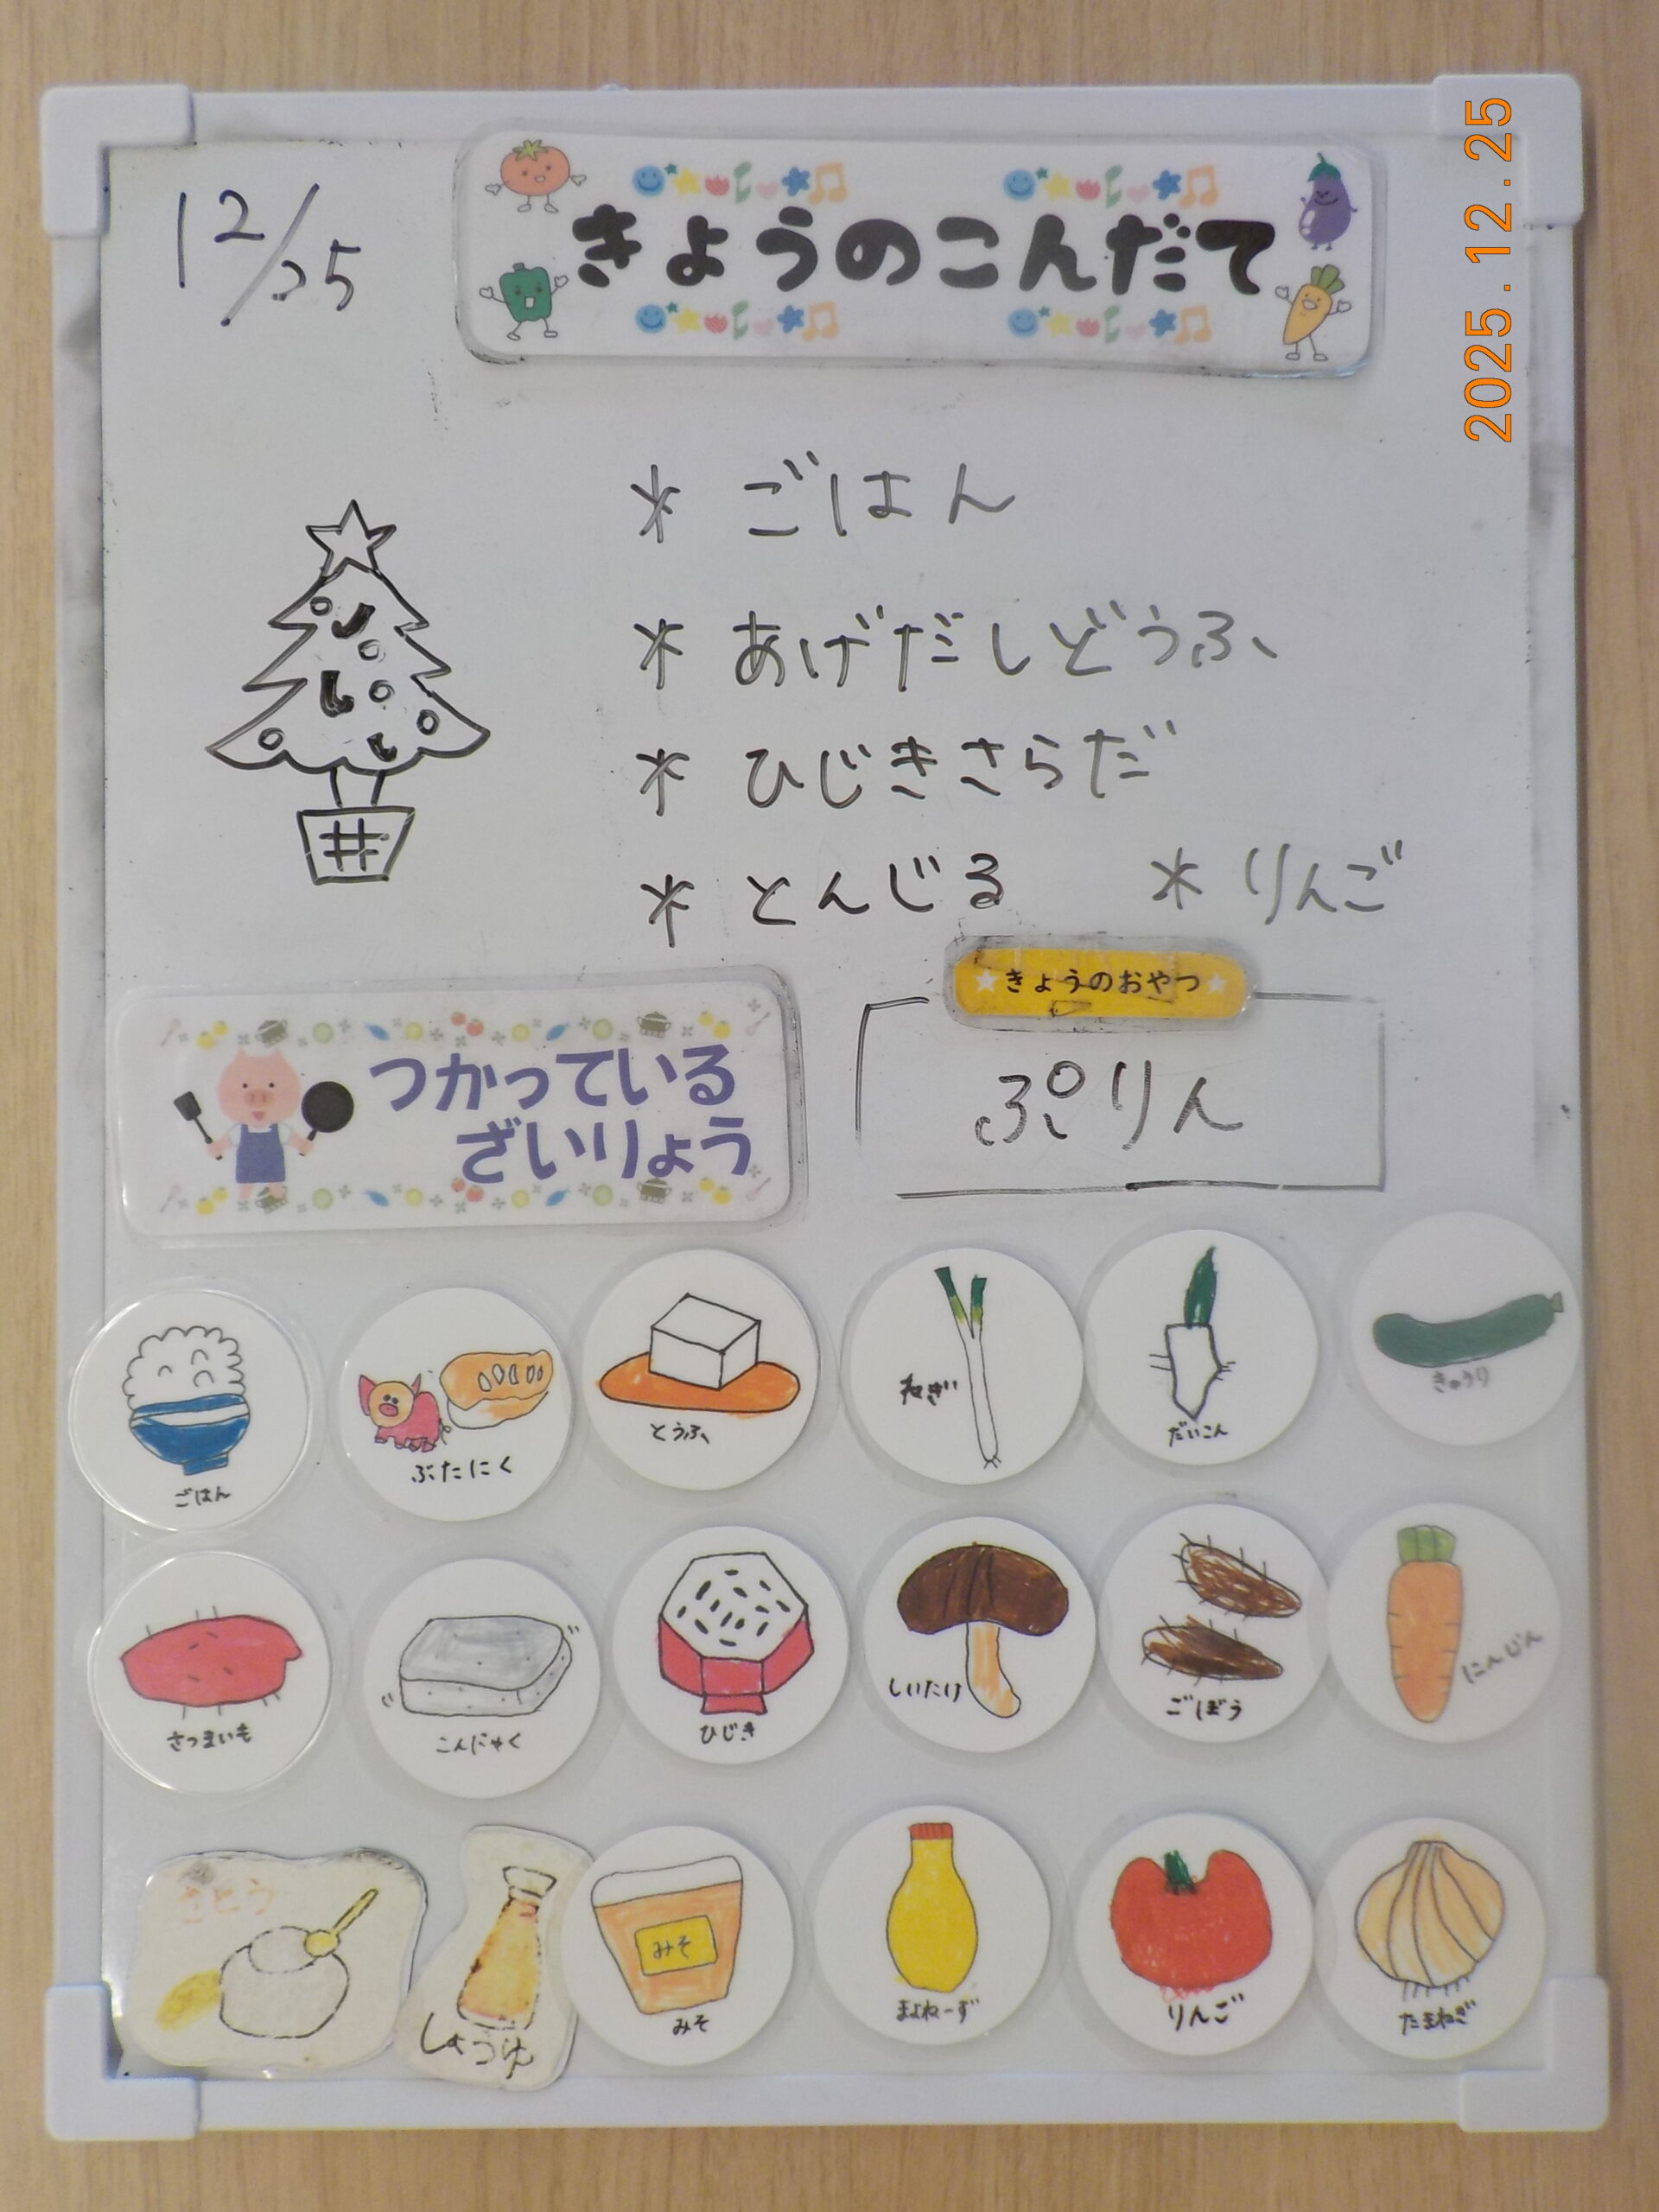 12/25
きょうのこんだて
2025.12.25
* ごはん
* あげだしどうふ
* ひじきさらだ
* とんじる * りんご
きょうのおやつ
ぷりん
つかっている
ざいりょう
ごはん
ぶたにく
とうふ
ねぎ
だいこん
きゅうり
さつまいも
こんにゃく
ひじき
しいたけ
ごぼう
にんじん
さとう
しょうゆ
みそ
みそ
まよねーず
りんご
たまねぎ